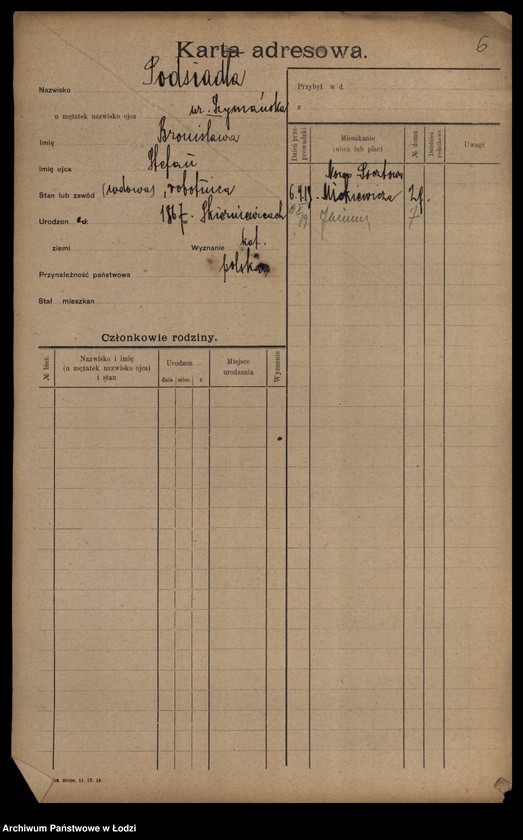 6
Karta adresowa.
Nazwisko Podsiadła
u mężatek nazwisko ojca ur. Szymańska
Imię Bronisława
Imię ojca Stefan
Stan lub zawód (wdowa), robotnica
Urodzon 1867 w Skierniewicach
ziemi Wyznanie kat.
Przynależność państwowa polska
Stał. mieszkan.
Przybył w d.
z
Dzień przeprowadzki
Mieszkanie
(ulica lub plac)
№ domu
Dzielnica
Uwagi
6. Mickiewicza
7
Członkowie rodziny.
№ bież.
Nazwisko i imię
(u mężatek nazwisko ojca)
i stan
Urodzon.
dnia mies. r.
Miejsce
urodzenia
Wyznanie
Archiwum Państwowe w Łodzi